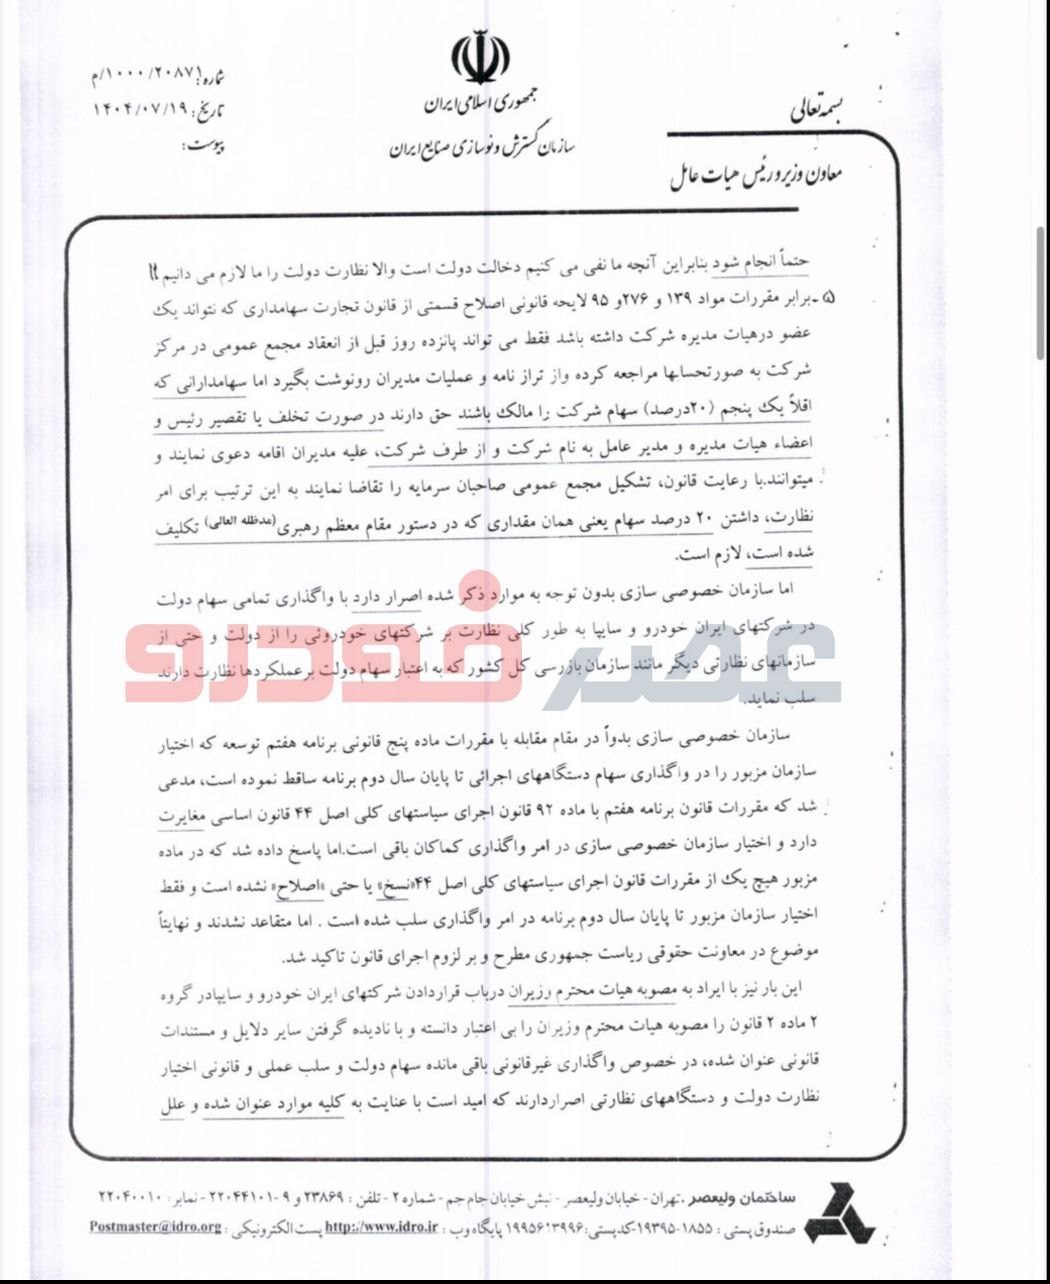 بسمه تعالی
جمهوری اسلامی ایران
سازمان گسترش و نوسازی صنایع ایران
معاون وزیر و رئیس هیات عامل
شماره: ۱۰۰۰/۲۰۸۷۱/م
تاریخ: ۱۴۰۴/۰۷/۱۹
پیوست:
حتماً انجام شود بنابراین آنچه ما نفی می کنیم دخالت دولت است والا نظارت دولت را ما لازم می دانیم !!
۵- برابر مقررات مواد ۱۳۹ و ۲۷۶و ۹۵ لایحه قانونی اصلاح قسمتی از قانون تجارت سهامداری که نتواند یک
عضو درهیات مدیره شرکت داشته باشد فقط می تواند پانزده روز قبل از انعقاد مجمع عمومی در مرکز
شرکت به صورتحسابها مراجعه کرده واز تراز نامه و عملیات مدیران رونوشت بگیرد اما سهامدارانی که
اقلاً یک پنجم (۲۰درصد) سهام شرکت را مالک باشند حق دارند در صورت تخلف یا تقصیر رئیس و
اعضاء هیات مدیره و مدیر عامل به نام شرکت و از طرف شرکت، علیه مدیران اقامه دعوی نمایند و
میتوانند.با رعایت قانون، تشکیل مجمع عمومی صاحبان سرمایه را تقاضا نمایند به این ترتیب برای امر
نظارت، داشتن ۲۰ درصد سهام یعنی همان مقداری که در دستور مقام معظم رهبری(مدظله العالی) تکلیف
شده است، لازم است.
اما سازمان خصوصی سازی بدون توجه به موارد ذکر شده اصرار دارد با واگذاری تمامی سهام دولت
در شرکتهای ایران خودرو و سایپا به طور کلی نظارت بر شرکتهای خودروئی را از دولت و حتی از
سازمانهای نظارتی دیگر مانند سازمان بازرسی کل کشور که به اعتبار سهام دولت برعملکردها نظارت دارند
سلب نماید.
عصر خودرو
سازمان خصوصی سازی بدواً در مقام مقابله با مقررات ماده پنج قانونی برنامه هفتم توسعه که اختیار
سازمان مزبور را در واگذاری سهام دستگاههای اجرائی تا پایان سال دوم برنامه ساقط نموده است، مدعی
شد که مقررات قانون برنامه هفتم با ماده ۹۲ قانون اجرای سیاستهای کلی اصل ۴۴ قانون اساسی مغایرت
دارد و اختیار سازمان خصوصی سازی در امر واگذاری کماکان باقی است.اما پاسخ داده شد که در ماده
مزبور هیچ یک از مقررات قانون اجرای سیاستهای کلی اصل ۴۴«نسخ» یا حتی «اصلاح» نشده است و فقط
اختیار سازمان مزبور تا پایان سال دوم برنامه در امر واگذاری سلب شده است . اما متقاعد نشدند و نهایتاً
موضوع در معاونت حقوقی ریاست جمهوری مطرح و بر لزوم اجرای قانون تاکید شد.
این بار نیز با ایراد به مصوبه هیات محترم وزیران درباب قراردادن شرکتهای ایران خودرو و سایپادر گروه
۲ ماده ۲ قانون را مصوبه هیات محترم وزیران را بی اعتبار دانسته و با نادیده گرفتن سایر دلایل و مستندات
قانونی عنوان شده، در خصوص واگذاری غیرقانونی باقی مانده سهام دولت و سلب عملی و قانونی اختیار
نظارت دولت و دستگاههای نظارتی اصراردارند که امید است با عنایت به کلیه موارد عنوان شده و علل
ساختمان ولیعصر .تهران - خیابان ولیعصر - نبش خیابان جام جم - شماره ۲ - تلفن : ۲۳۸۶۹ و ۹ - ۲۲۰۴۴۱۰۱ - نمابر : ۲۲۰۴۰۰۱۰
صندوق پستی : ۱۸۵۵-۱۹۳۹۵-کد پستی: ۱۹۹۵۶۱۳۹۹۶ پایگاه وب : http://www.idro.ir پست الکترونیکی : Postmaster@idro.org